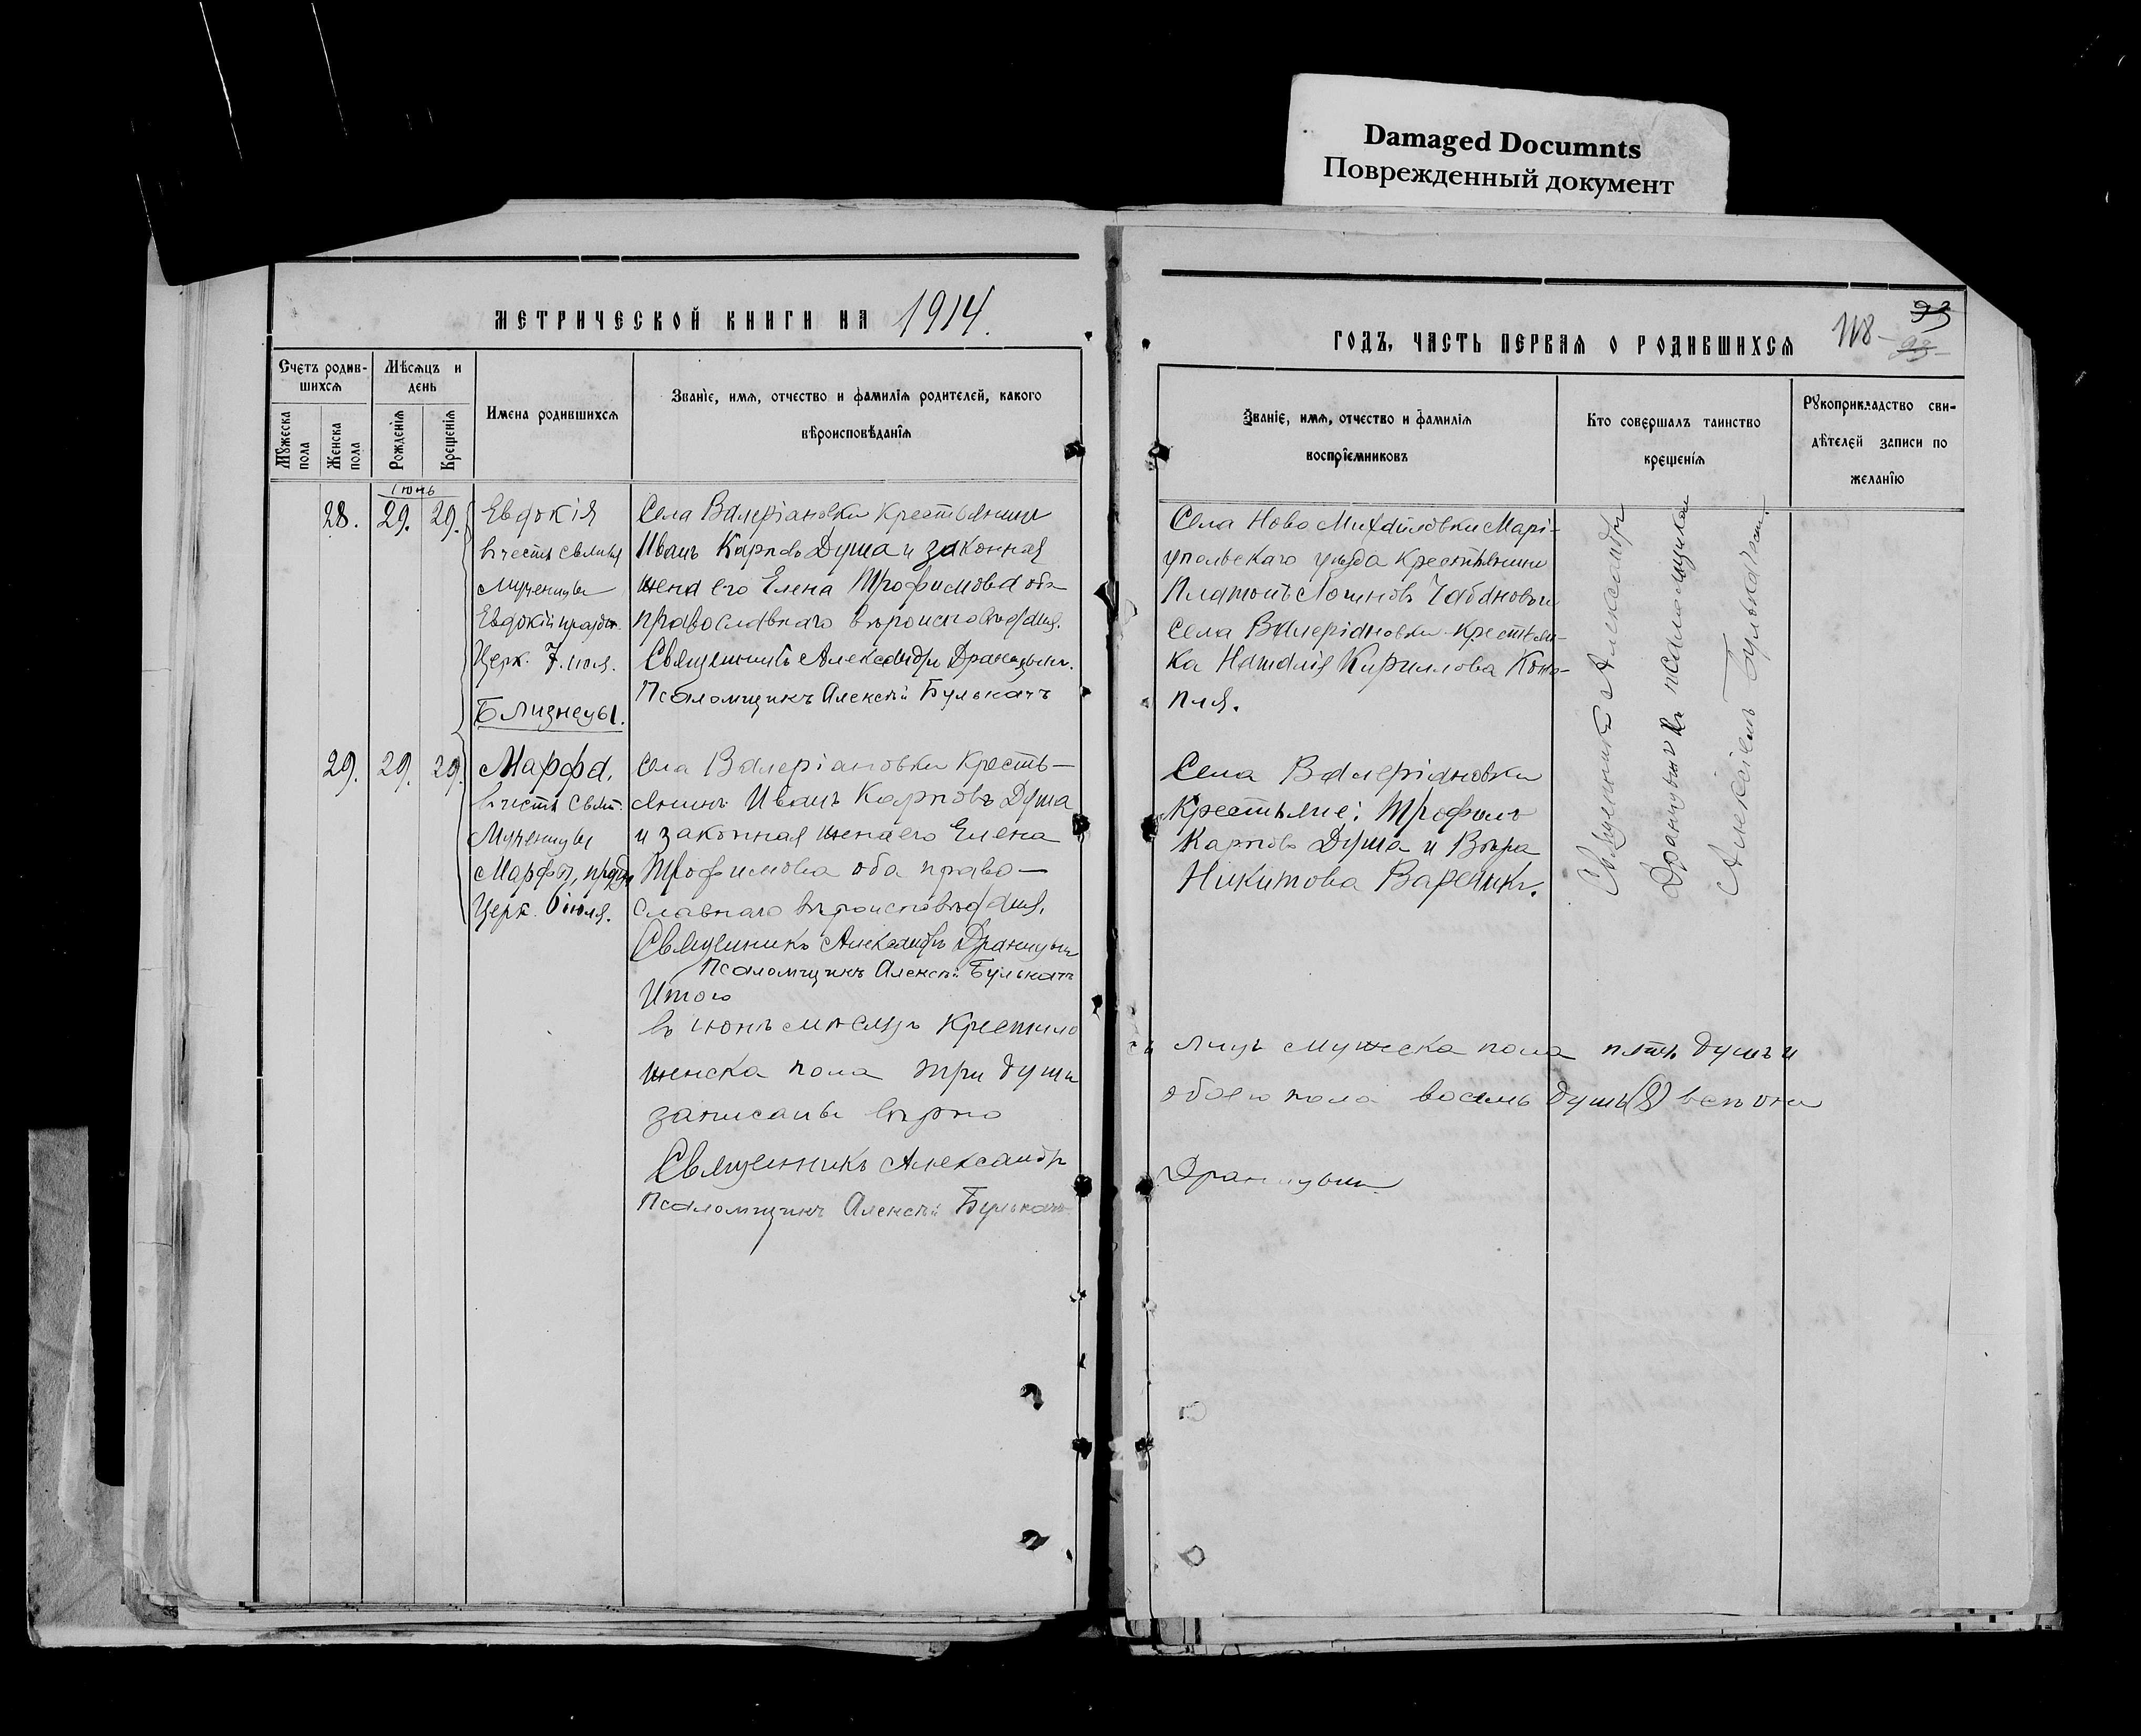 Damaged Documnts
Поврежденный документ
МЕТРИЧЕСКОЙ КНИГИ НА 1914.
Счетъ родив-
шихся
Мѣсяцъ и
день
Мужеска
пола
Женска
пола
Рожденія
Крещенія
Имена родившихся
Званіе, имя, отчество и фамилія родителей, какого
вѣроисповѣданія
Іюнь
28. 29. 29.
Евдокія
въ честь святыя
мученицы
Евдокіи праздн.
Церк. 7. іюля.
Близнецы.
Села Валеріановки крестьянинъ
Иванъ Карповъ Душа и законная
жена его Елена Трофимова оба
православнаго вѣроисповѣданія.
Священникъ Александръ
Псаломщикъ Алексѣй Булькачъ
29. 29. 29.
Марфа,
въ честь свят.
Мученицы
Марфы, праздн
Церк. 6 іюля.
Села Валеріановки Кресть-
янинъ Иванъ Карповъ Душа
и законная жена его Елена
Трофимова оба право-
славнаго вѣроисповѣданія.
Священникъ Александръ
Псаломщикъ Алексѣй Булькачъ
Итого
въ іюнѣ мѣсяцѣ крещено
женска пола три души
записаны вѣрно
Священникъ Александръ
Псаломщикъ Алексѣй Булькачъ
ГОДЪ, ЧАСТЬ ПЕРВАЯ О РОДИВШИХСЯ
118- 93
93-
Званіе, имя, отчество и фамилія
воспріемниковъ
Кто совершалъ таинство
крещенія
Рукоприкладство сви-
дѣтелей записи по
желанію
Села Ново Михайловки Марі-
упольскаго уѣзда крестьянинъ
Платонъ Логиновъ Чабановъ и
Села Валеріановки крестьян-
ка Наталія Кириллова Коно-
пля.
Села Валеріановки
Крестьяне: Трофимъ
Карповъ Душа и Вѣра
Никитова Вареникъ.
Священникъ Александръ
съ псаломщикомъ
Алексѣемъ Булькачемъ.
лицъ мужеска пола пять душъ и
обоего пола восемь душъ (8) всѣ они